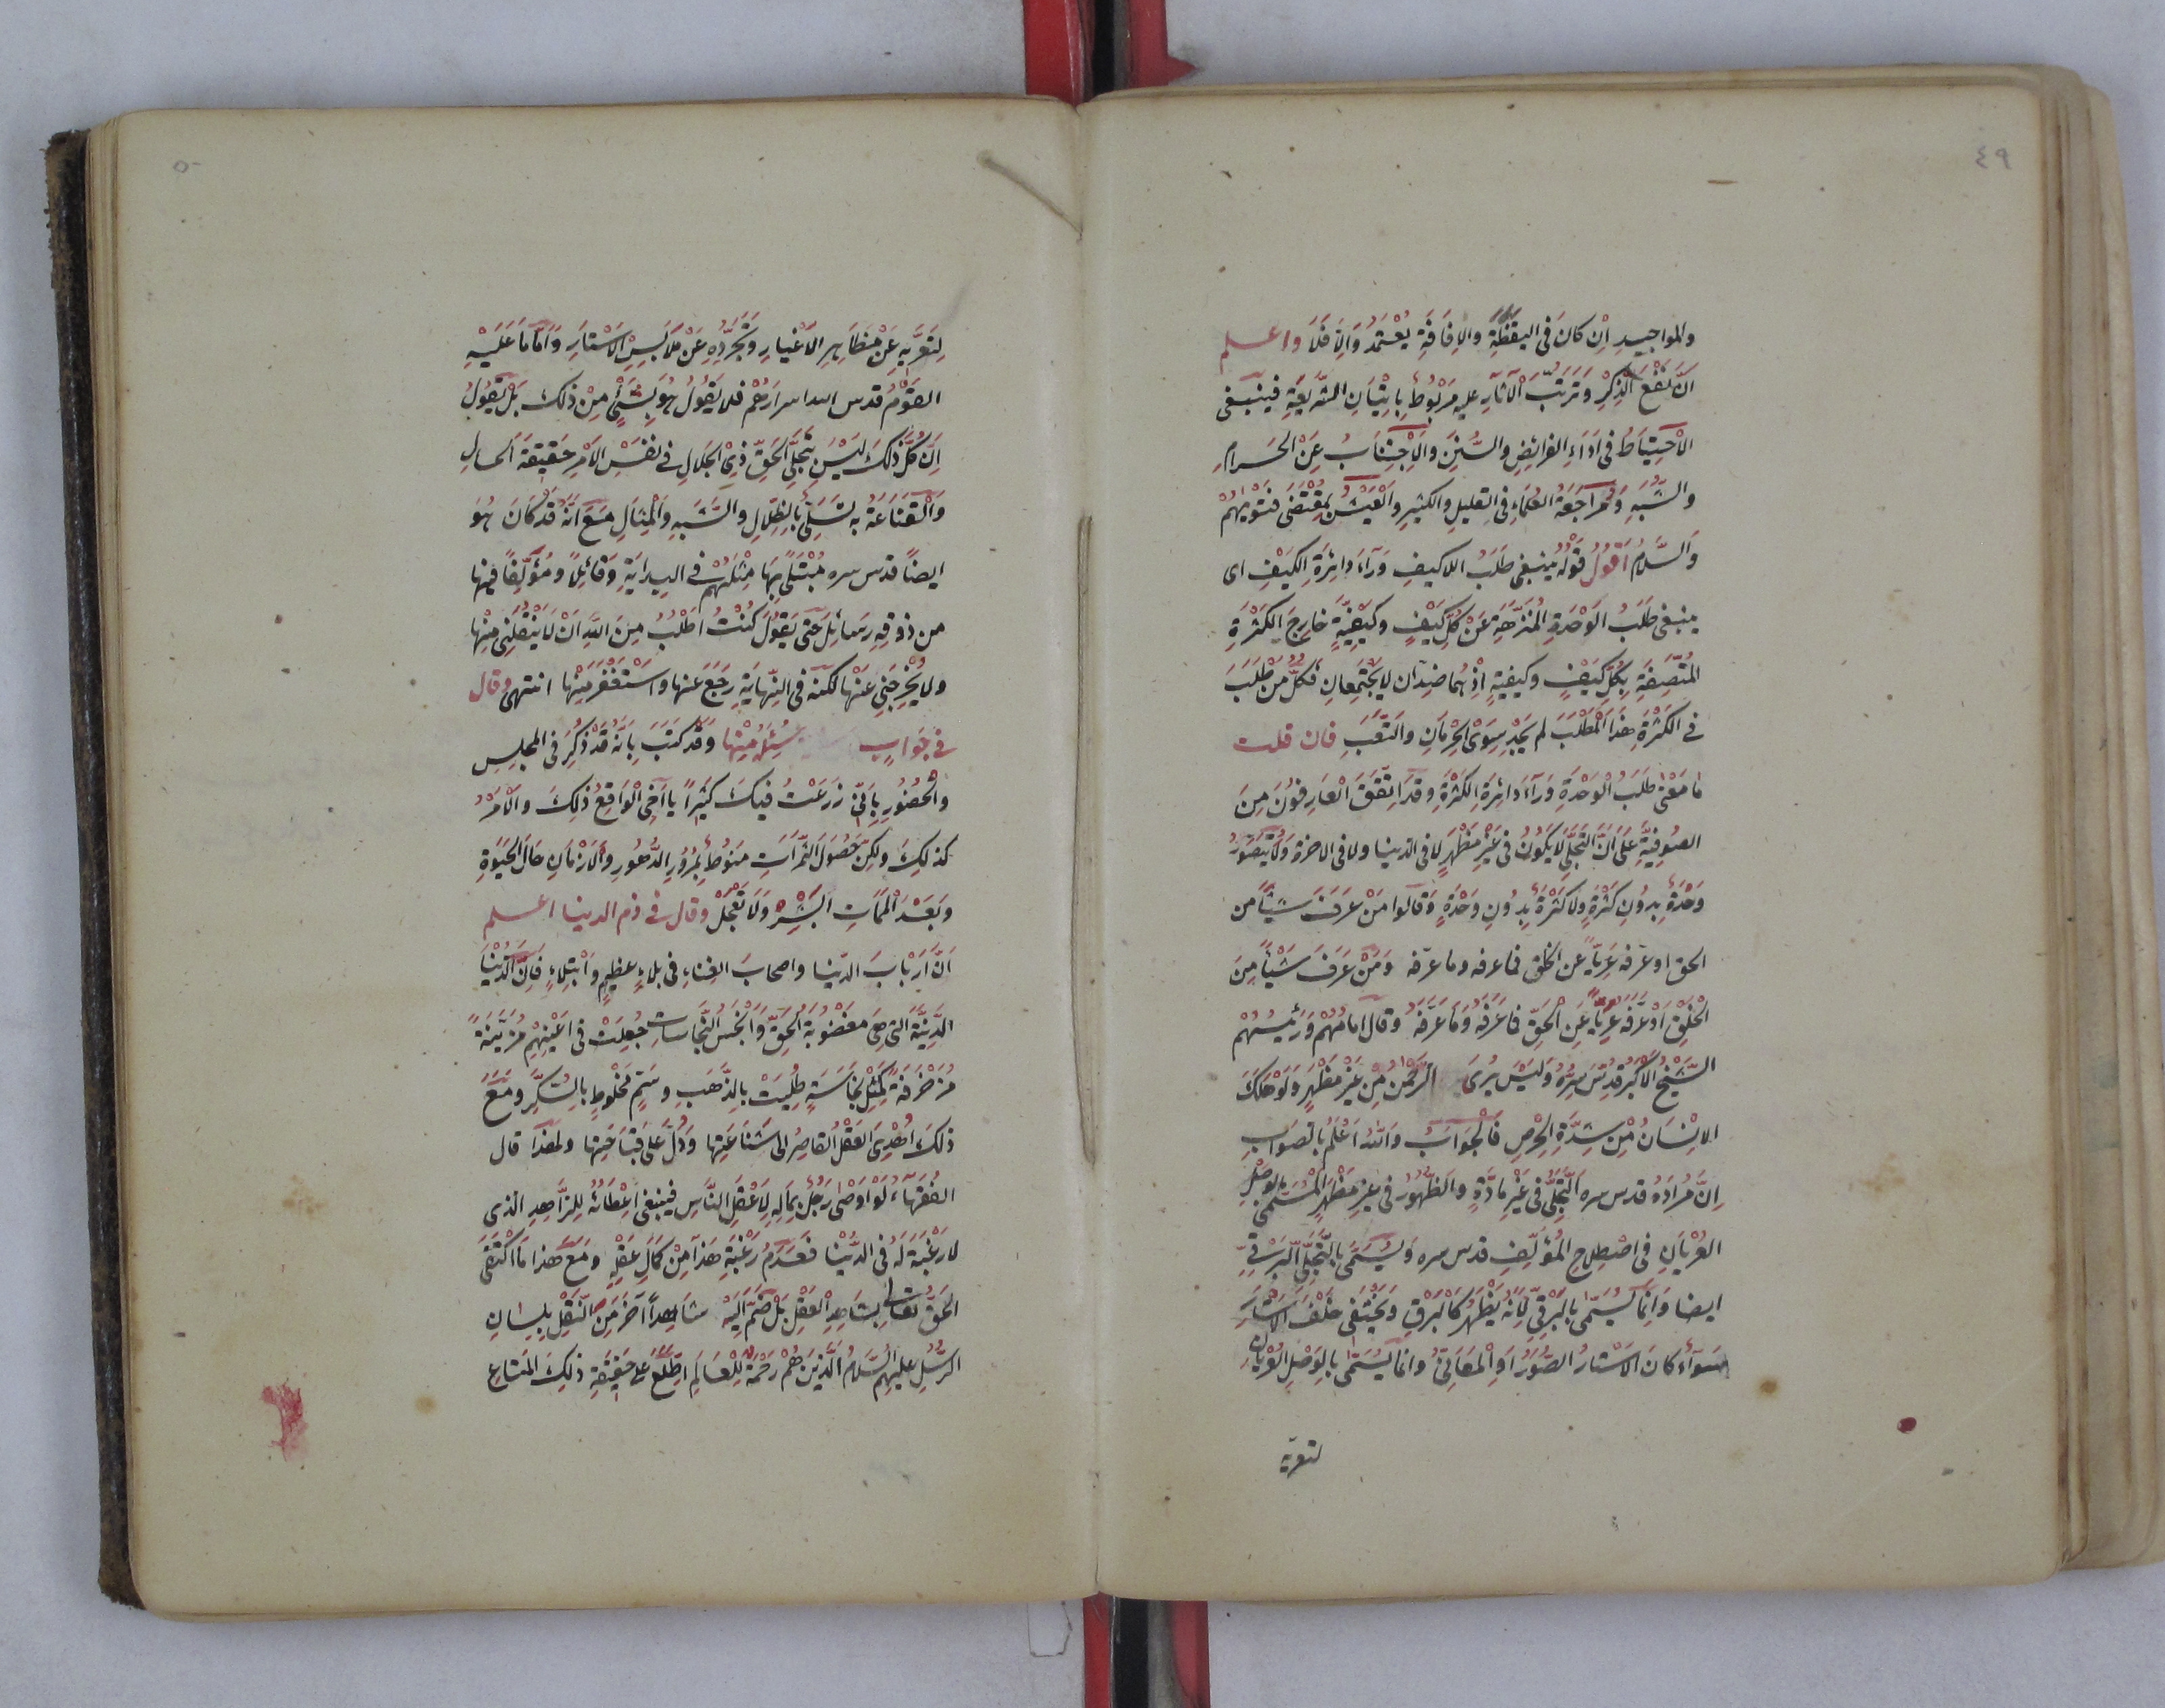 ٤٩
والمواجيد ان كان فى اليقظة والافاقة يعتمد والا فلا واعلم
ان نفع الذكر وترتب الآثار عليه مربوط باتيان الشريعة فينبغى
الاحتياط فى اداء الفرائض والسنن والاجتناب عن الحرام
والشبه ومراجعة العلماء فى القليل والكثير والعيش بمقتضى فتويهم
والسلام اقول قوله ينبغى طلب اللاكيف ورآء دائرة الكيف اى
ينبغى طلب الوحدة المنزهة عن كل كيف وكيفية خارج الكثرة
المتصفة بكل كيف وكيفية اذ هما ضدان لا يجتمعان فكل من طلب
فى الكثرة هذا المطلب لم يجد سوى الحرمان والتعب فان قلت
ما معنى طلب الوحدة ورآء دائرة الكثرة وقد اتفق العارفون من
الصوفية على ان التجلى لا يكون فى غير مظهر لا فى الدنيا ولا فى الاخرة ولا يتصور
وحدة بدون كثرة ولا كثرة بدون وحدة وقالوا من عرف شيئا من
الحق او عرفه عريا عن الخلق فما عرفه وما عرفه ومن عرف شيئا من
الخلق او عرفه عريا عن الحق فما عرفه وما عرفه وقال امامهم ورئيسهم
الشيخ الاكبر قدس سره وليس يرى الرحمن من غير مظهر ولو هلك
الانسان من شدة الحرص فالجواب والله اعلم بالصواب
ان مراده قدس سره التجلى فى غير مادة والظهور فى غير مظهر المسمى بالوصل
العريان فى اصطلاح المؤلف قدس سره ويسمى بالتجلى البرقى
ايضا وانما يسمى بالبرقى لانه يظهر كالبرق ويختفى خلف الاستار
سوآء كان الاستار الصور او المعانى وانما يسمى بالوصل العريان
لتعريه
٥٠
لتعريه عن مظاهر الاغيار وتجرده عن ملابس الاستار واما ما عليه
القوم قدس الله اسرارهم فلا يقول هو بشئ من ذلك بل يقول
ان كل ذلك ليس تجلى الحق ذى الجلال فى نفس الامر حقيقة الحال
والقناعة به تسلى بالظلال والشبه والمثال مع انه قد كان هو
ايضا قدس سره مبتلى بها مثلهم فى البداية وقائلا ومؤلفا فيها
من ذوقه رسائل حتى يقول كنت اطلب من الله ان لا ينقلنى منها
ولا يخرجنى عنها لكنه فى النهاية رجع عنها واستغفر منها انتهى وقال
فى جواب سئل منها وقد كتب بانه قد ذكر فى المجلس
والحضور بانى زرعت فيك كثيرا يا اخى الواقع ذلك والامر
كذلك ولكن حصول الثمرات منوط بمرور الدهور والازمان حال الحيوة
وبعد الممات ابشر ولا تعجل وقال فى ذم الدنيا اعلم
ان ارباب الدنيا واصحاب الغناء فى بلاء عظيم وابتلاء فان الدنيا
الدنية التى هى مغضوبة الحق وانجس النجاسات جعلت فى اعينهم مزينة
مزخرفة كمثل نجاسة طليت بالذهب وسم مخلوط بالسكر ومع
ذلك اهدى العقل القاصر الى شناعتها ودل على قباحتها ولهذا قال
الفقهاء لو اوصى رجل بماله لاعقل الناس فينبغى اعطائه للزاهد الذى
لا رغبة له فى الدنيا فعدم رغبته هذا من كمال عقله ومع هذا ما اكتفى
الحق تعالى بشاهد العقل بل ضم اليه شاهدا آخر من النقل بلسان
الرسل عليهم السلام الذين هم رحمة للعالم اطلع على حقيقة ذلك المتاع